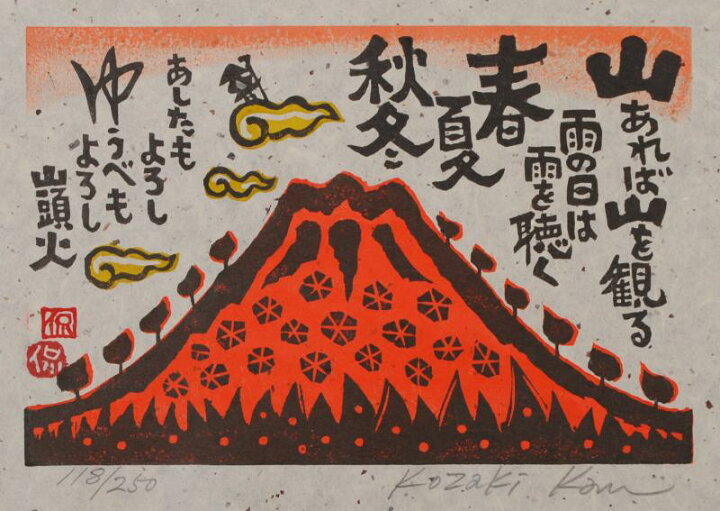 山あれば山を観る
雨の日は
雨を聴く
春夏
秋冬
あしたも
よろし
ゆうべも
よろし
山頭火
侃
侃
118/250 Kozaki Kan